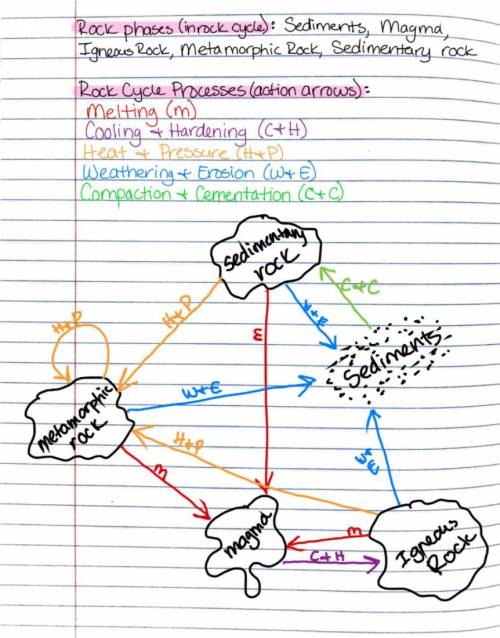 Rock phases (in rock cycle): Sediments, Magma,
Igneous Rock, Metamorphic Rock, Sedimentary rock
Rock Cycle Processes (action arrows):
Melting (m)
Cooling + Hardening (C+H)
Heat + Pressure (H+P)
Weathering + Erosion (W+E)
Compaction + Cementation (C+C)
sedimentary
rock
C+C
H+P
H+P
W+E
m
Sediments
W+E
metamorphic
rock
H+P
W+E
m
magma
m
C+H
Igneous
Rock